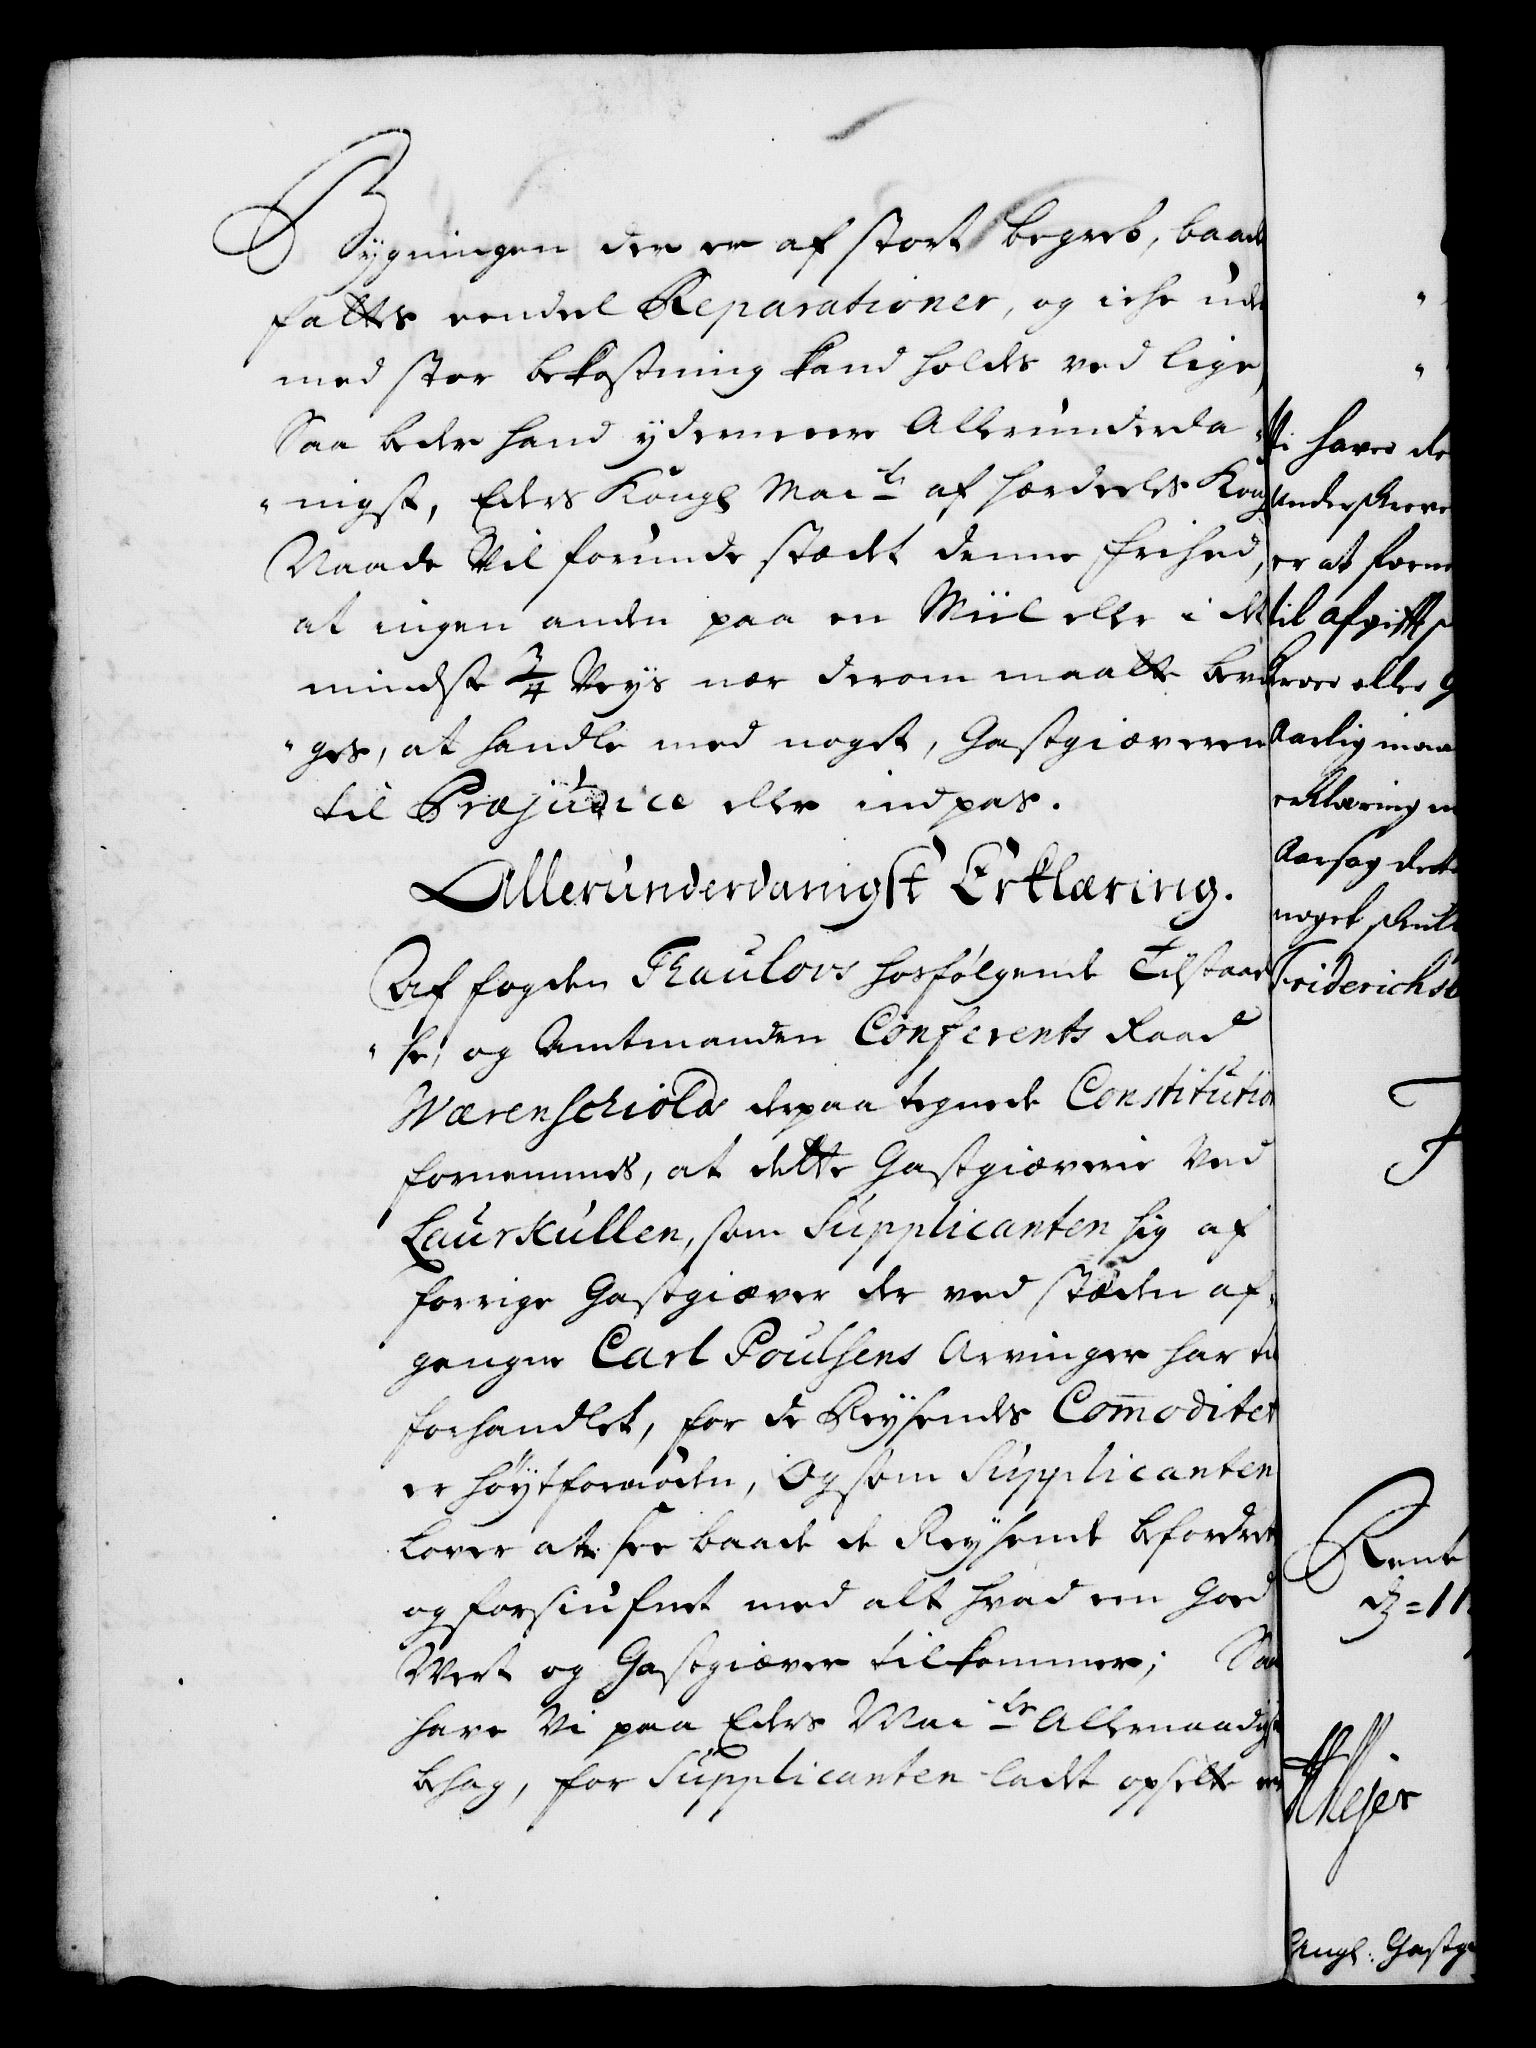 Bygningen der er af stort begreb, baade
fattes eendeel Reparationer, og iche uden
med stor bekostning kand holdes ved lige,
Saa beder hand ydermeere Allerunderda
"nigst, Eders Kongl Maits af særdeeles Kongl
Naade Vil forunde stædet denne frihed,
at ingen anden paa en Miil eller i det
mindste 3/4 Veys nær derom maatte bevil
"ges, at handle med noget, Gastgiæveren
til Præjudice eller indpas.
Allerunderdanigst Erklæring.
Af fogden Thaulovs hosfølgende Tilstaael
"se, og Amtmanden Conferents Raad
Wærenschiolds derpaa tegnede Constitution
fornemmes, at dette Gastgiæverie Ved
Laurkullen, som Supplicanten sig af
forrige Gastgiæver der ved stæden af,,
gangne Carl Poulsens Arvinger har til
forhandlet, for de Reysendes Commoditet
er høytfornøden, Og som Supplicanten
lover at see baade de Reysende befordret
og forsiufnet med alt hvad een Goed
Vert og Gastgiæver tilkommer; Saa
have Vi paa Eders Maits Allernaadigste
behag, for Supplicanten ladt opsette een
Vi have de
Underskreve
er at forne
til afgifft
Aarlig maa
erklæring
Aarsag
noget
Friderichs
Rente
Mejer
Angl: Gastg